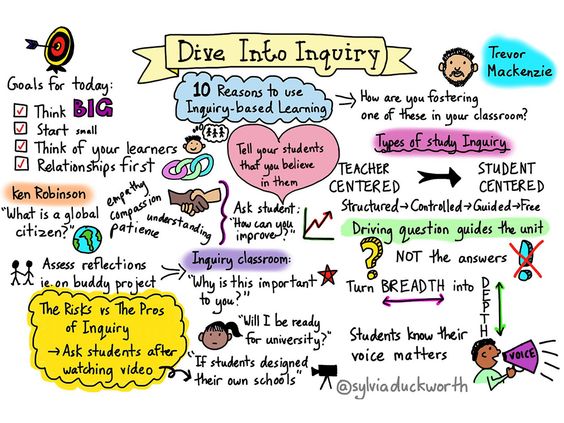 Dive Into Inquiry
Trevor
Mackenzie
Goals for today:
Think BIG
Start small
Think of your learners
Relationships first
10 Reasons to use
Inquiry-based Learning
How are you fostering
one of these in your classroom?
Tell your students
that you believe
in them
Types of study Inquiry
TEACHER
CENTERED
STUDENT
CENTERED
Structured→Controlled→Guided→Free
Ken Robinson
"What is a global
citizen?"
empathy
compassion
patience
understanding
Ask student:
"How can you
improve?"
Driving question guides the unit
? NOT the answers !
Turn BREADTH into
DEPTH
Assess reflections
ie. on buddy project
Inquiry classroom:
"Why is this important
to you?"
"Will I be ready
for university?"
"If students designed
their own schools"
The Risks vs The Pros
of Inquiry
→ Ask students after
watching video
Students know their
voice matters
VOICE
@sylviaduckworth